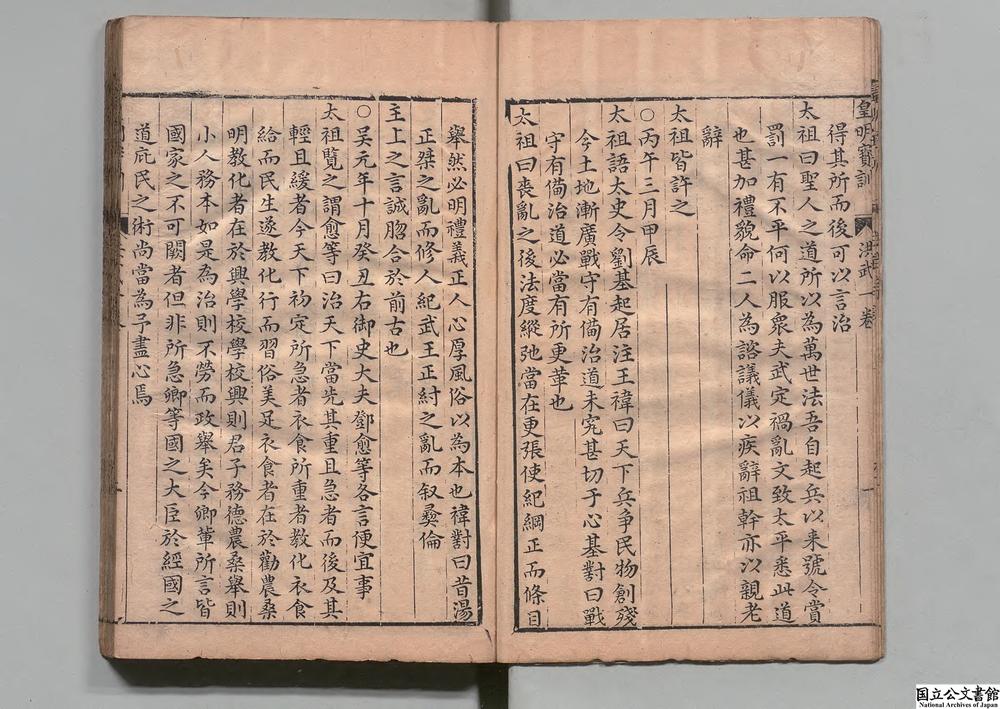 皇明寶訓
洪武一卷
得其所而後可以言治
太祖曰聖人之道所以為萬世法吾自起兵以來號令賞
罰一有不平何以服衆夫武定禍亂文致太平悉此道
也甚加禮貌命二人為諮議儀以疾辭祖幹亦以親老
辭
太祖皆許之
○丙午三月甲辰
太祖語太史令劉基起居注王禕曰天下兵爭民物創殘
今土地漸廣戰守有備治道未究甚切于心基對曰戰
守有備治道必當有所更革也
太祖曰喪亂之後法度縱弛當在更張使紀綱正而條目
舉然必明禮義正人心厚風俗以為本也禕對曰昔湯
正桀之亂而修人紀武王正紂之亂而叙彝倫
主上之言誠脗合於前古也
○吳元年十月癸丑右御史大夫鄧愈等各言便宜事
太祖覽之謂愈等曰治天下當先其重且急者而後及其
輕且緩者今天下初定所急者衣食所重者教化衣食
給而民生遂教化行而習俗美足衣食者在於勸農桑
明教化者在於興學校學校興則君子務德農桑舉則
小人務本如是為治則不勞而政舉矣今卿輩所言皆
國家之不可闕者但非所急卿等國之大臣於經國之
道庇民之術尚當為予盡心焉
国立公文書館
National Archives of Japan